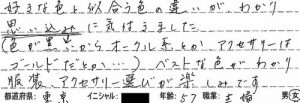 好きな色と似合う色の違いが、わかり
思い込みに気付きました
(色が黒いからオークル系とか アクセサリーは
ゴールドだとか…) ベストな色がわかり
服装、アクセサリー選びが楽しみです
都道府県: 東京 イニシャル: 年齢: 57 職業: 主婦 男・女